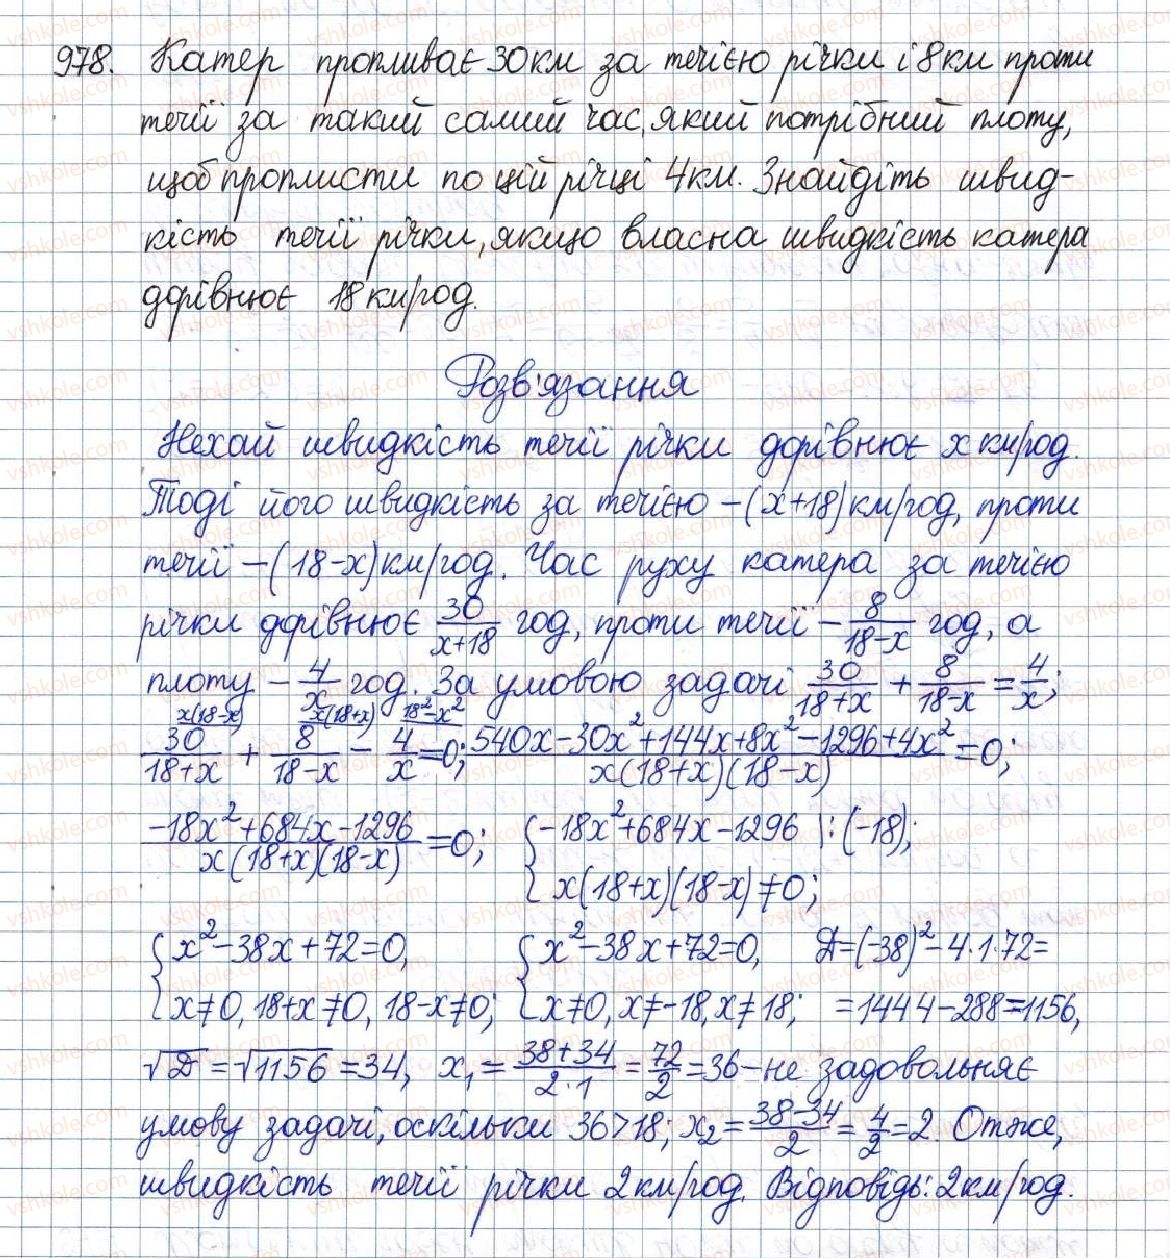 978. Катер пропливає 30 км за течією річки і 8 км проти
течії за такий самий час, який потрібний плоту,
щоб проплисти по цій річці 4 км. Знайдіть швид-
кість течії річки, якщо власна швидкість катера
дорівнює 18 км/год.
Розв'язання
Нехай швидкість течії річки дорівнює x км/год.
Тоді його швидкість за течією – (x+18) км/год, проти
течії – (18-x) км/год. Час руху катера за течією
річки дорівнює 30/(x+18) год, проти течії – 8/(18-x) год, а
плоту – 4/x год. За умовою задачі 30/(18+x) + 8/(18-x) = 4/x;
x(18-x) x(18+x) 18²-x²
30/(18+x) + 8/(18-x) - 4/x = 0; (540x-30x²+144x+8x²-1296+4x²)/(x(18+x)(18-x)) = 0;
(-18x²+684x-1296)/(x(18+x)(18-x)) = 0; { -18x²+684x-1296 |:(-18);
x(18+x)(18-x)≠0;
{ x²-38x+72=0, { x²-38x+72=0, Д=(-38)²-4·1·72=
x≠0, 18+x≠0, 18-x≠0; x≠0, x≠-18, x≠18; =1444-288=1156,
√Д=√1156=34, x₁=(38+34)/(2·1)=72/2=36 – не задовольняє
умову задачі, оскільки 36>18; x₂=(38-34)/2=4/2=2. Отже,
швидкість течії річки 2 км/год. Відповідь: 2 км/год.
vshkole.com